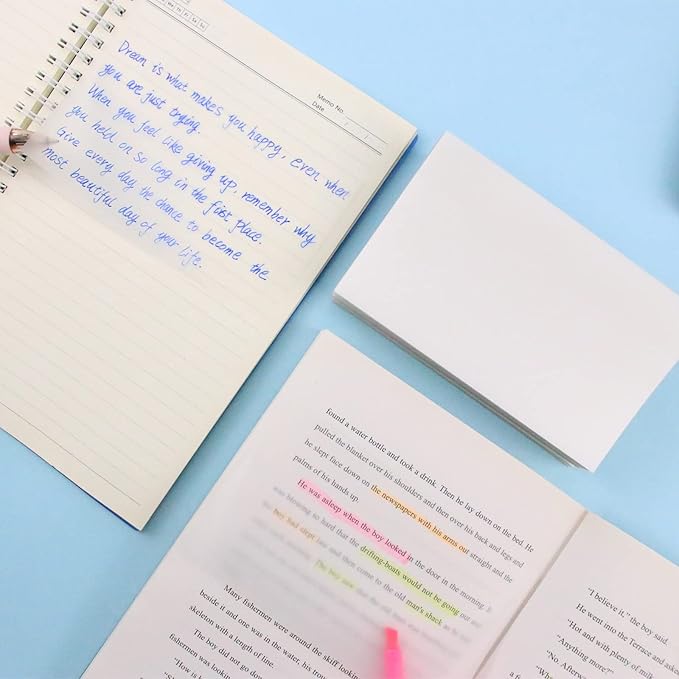 Mo Tu We Th Fr Sa Su
Memo No.
Date / /
Dream is what makes you happy, even when
you are just trying.
When you feel like giving up, remember why
you held on so long in the first place.
Give every day the chance to become the
most beautiful day of your life.
found a water bottle and took a drink. Then he lay down on the bed. He
pulled the blanket over his shoulders and then over his back and legs and
he slept face down on the newspapers with his arms out straight and the
palms of his hands up.
He was asleep when the boy looked in the door in the morning. It
was blowing so hard that the drifting-boats would not be going out and
the boy had slept late and then come to the old man's shack as he
The boy saw that the old man
Many fishermen were around the skiff looking
beside it and one was in the water, his trou
skeleton with a length of line.
The boy did not go down
"How is
fishermen was looking
"I believe it," the boy said.
He went into the Terrace and asked
"Hot and with plenty of milk
"Anything more?"
"No. Afterw
"Wh